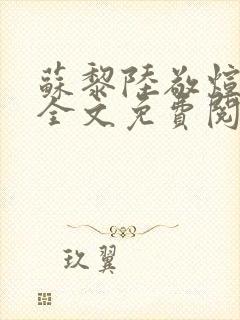 蘇黎陸敬煊
全文免費閱
玖翼